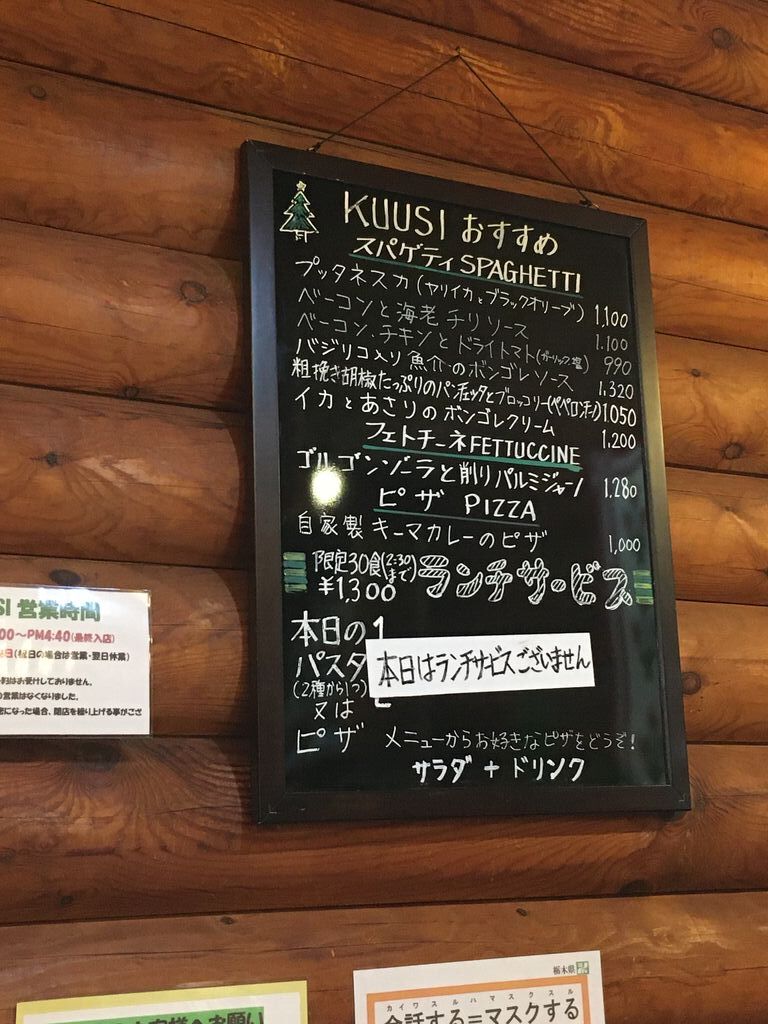 KUUSI おすすめ
スパゲティ SPAGHETTI
プッタネスカ (ヤリイカとブラックオリーブ) 1,100
ベーコンと海老 チリソース 1.100
ベーコン.チキンとドライトマト(ガーリック醤) 990
バジリコ入り魚介のボンゴレソース 1.320
粗挽き胡椒たっぷりのパンチェッタとブロッコリー(ペペロンチーノ) 1050
イカとあさりのボンゴレクリーム 1.200
フェトチーネ FETTUCCINE
ゴルゴンゾーラと削りパルミジャーノ 1.280
ピザ PIZZA
自家製 キーマカレーのピザ 1,000
限定30食(2:30まで) ランチサービス
¥1,300
本日の
パスタ
(2種から1つ)
本日はランチサービスございません
又は
ピザ メニューからお好きなピザをどうぞ!
サラダ + ドリンク
SI 営業時間
00～PM4:40(最終入店)
日(祝日の場合は営業・翌日休業)
お受けしておりません。
営業はなくなりました。
になった場合、閉店を繰り上げる事がござ
お願い
栃木県
カイワスルハマスクスル
会話する=マスクする